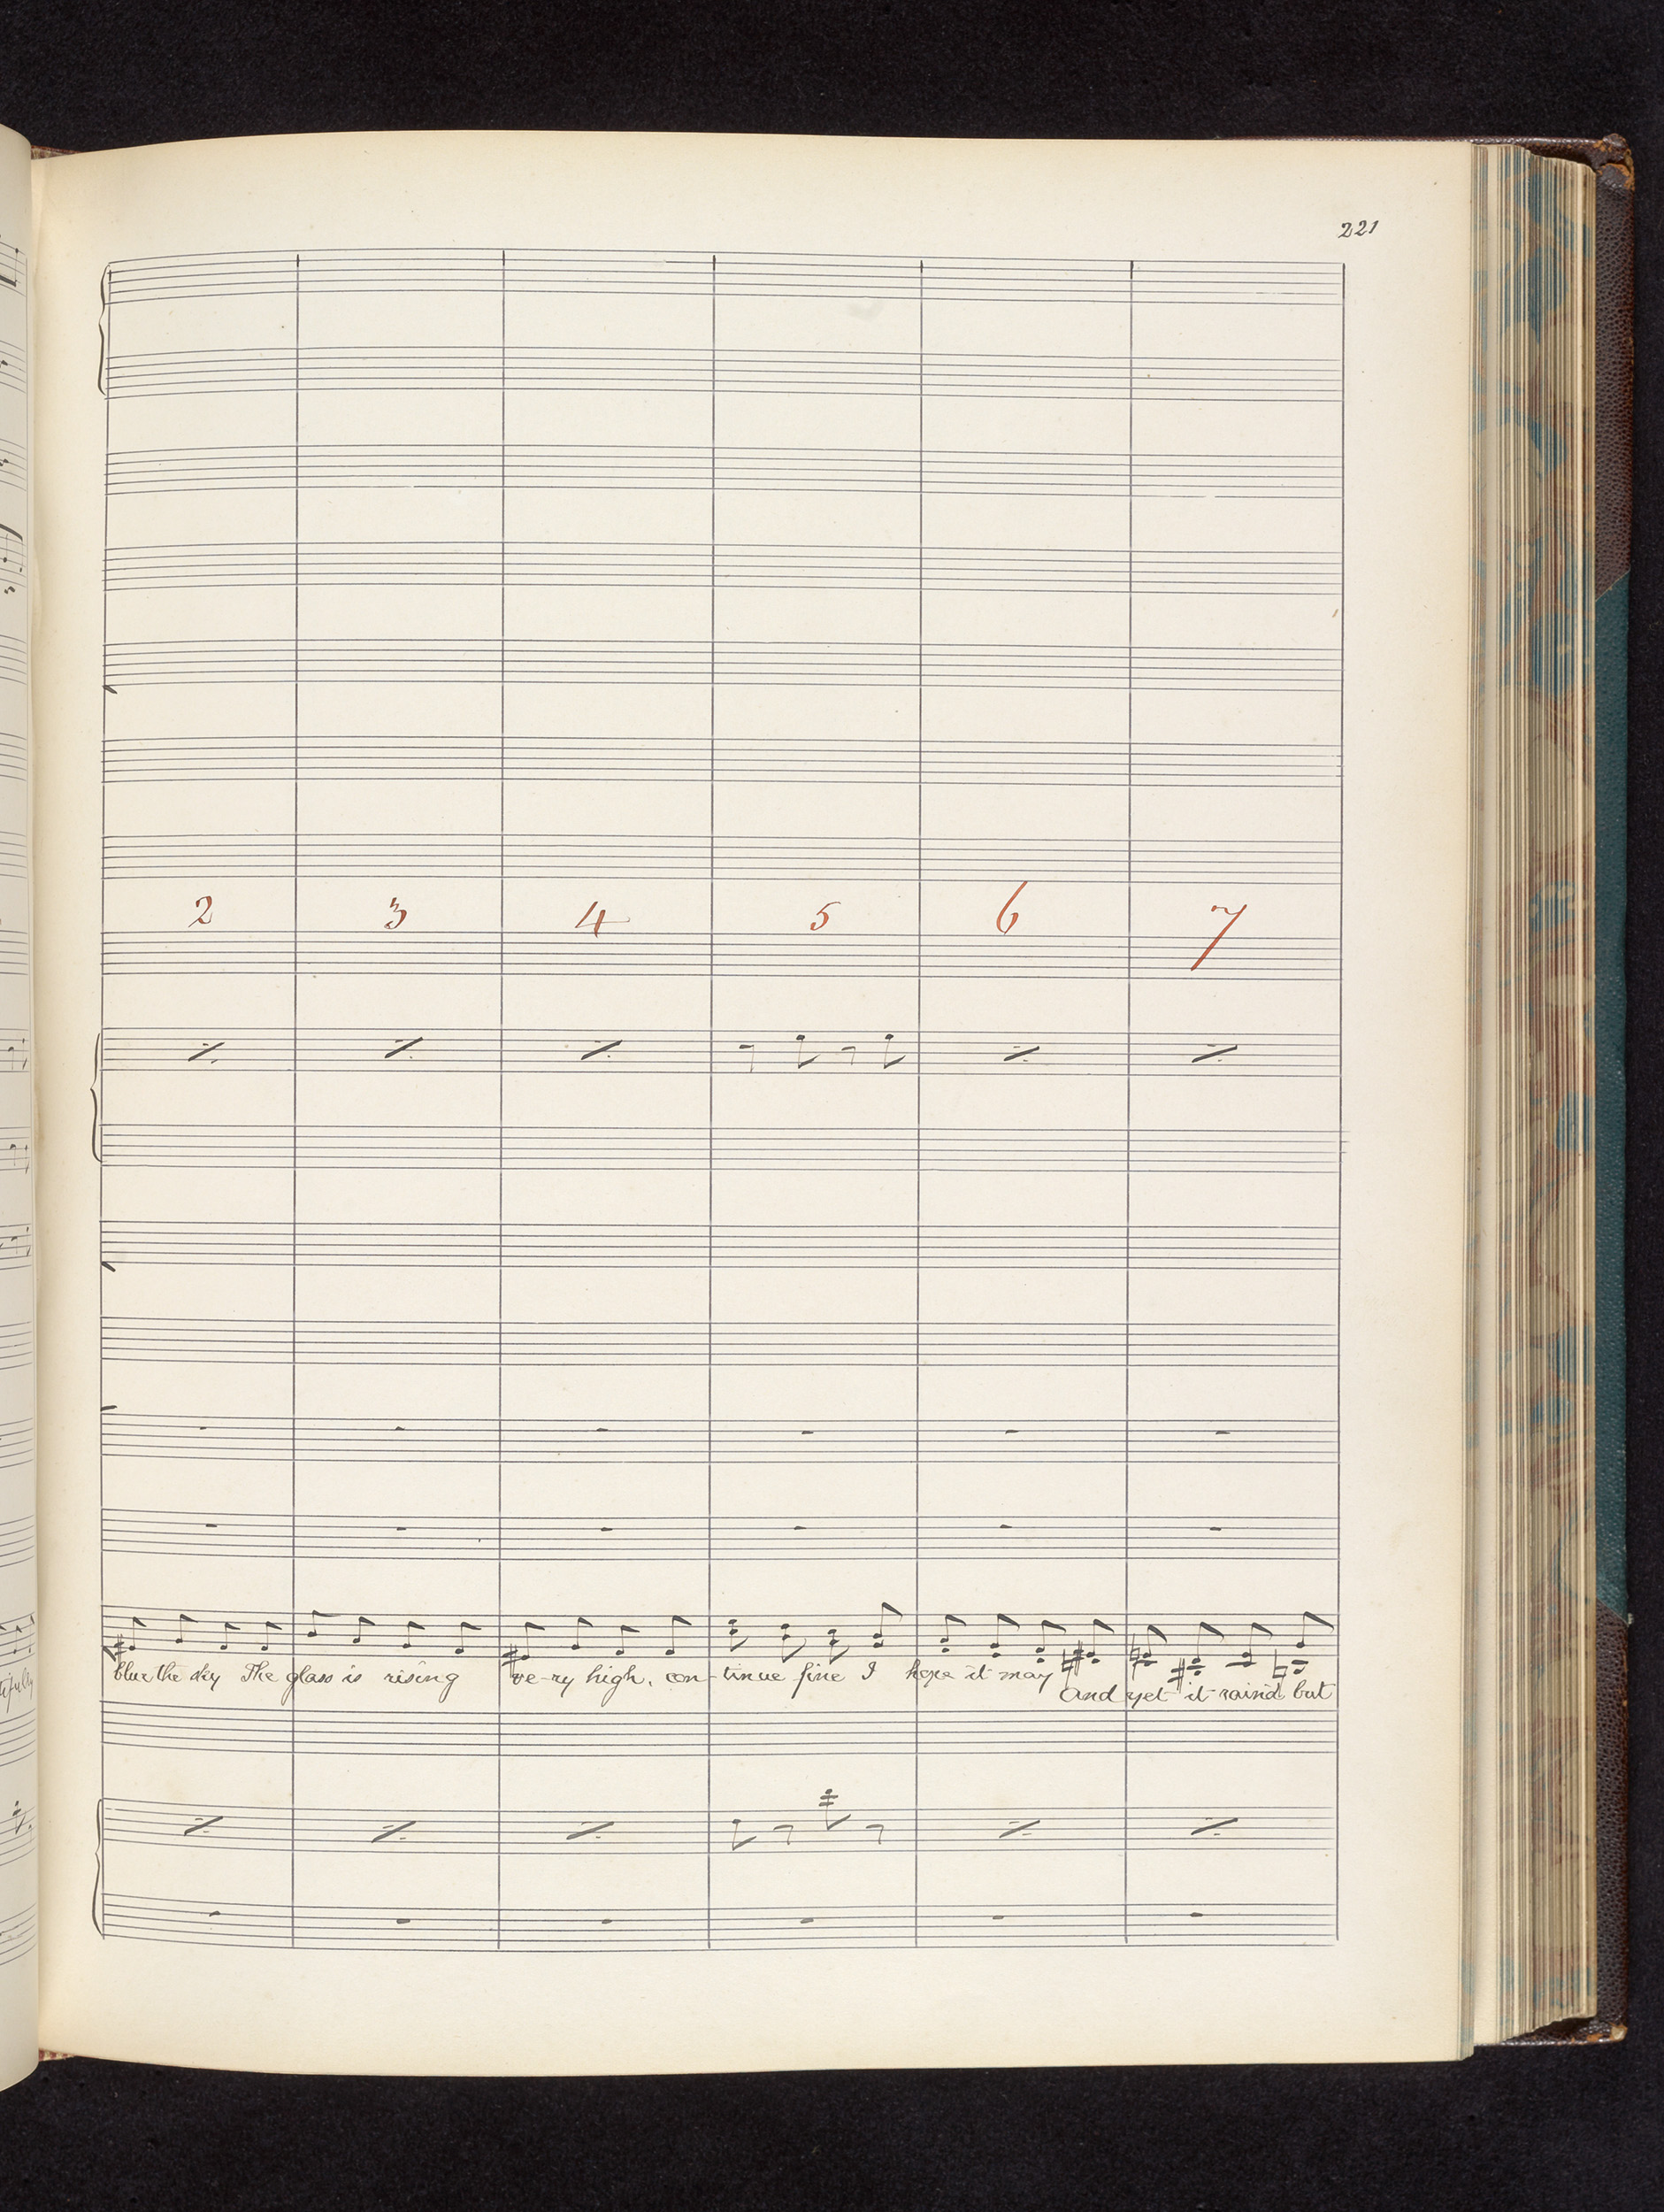 221
2 3 4 5 6 7
blue the sky The glass is rising ve-ry high, con-tinue fine I hope it may
And yet it rain'd but